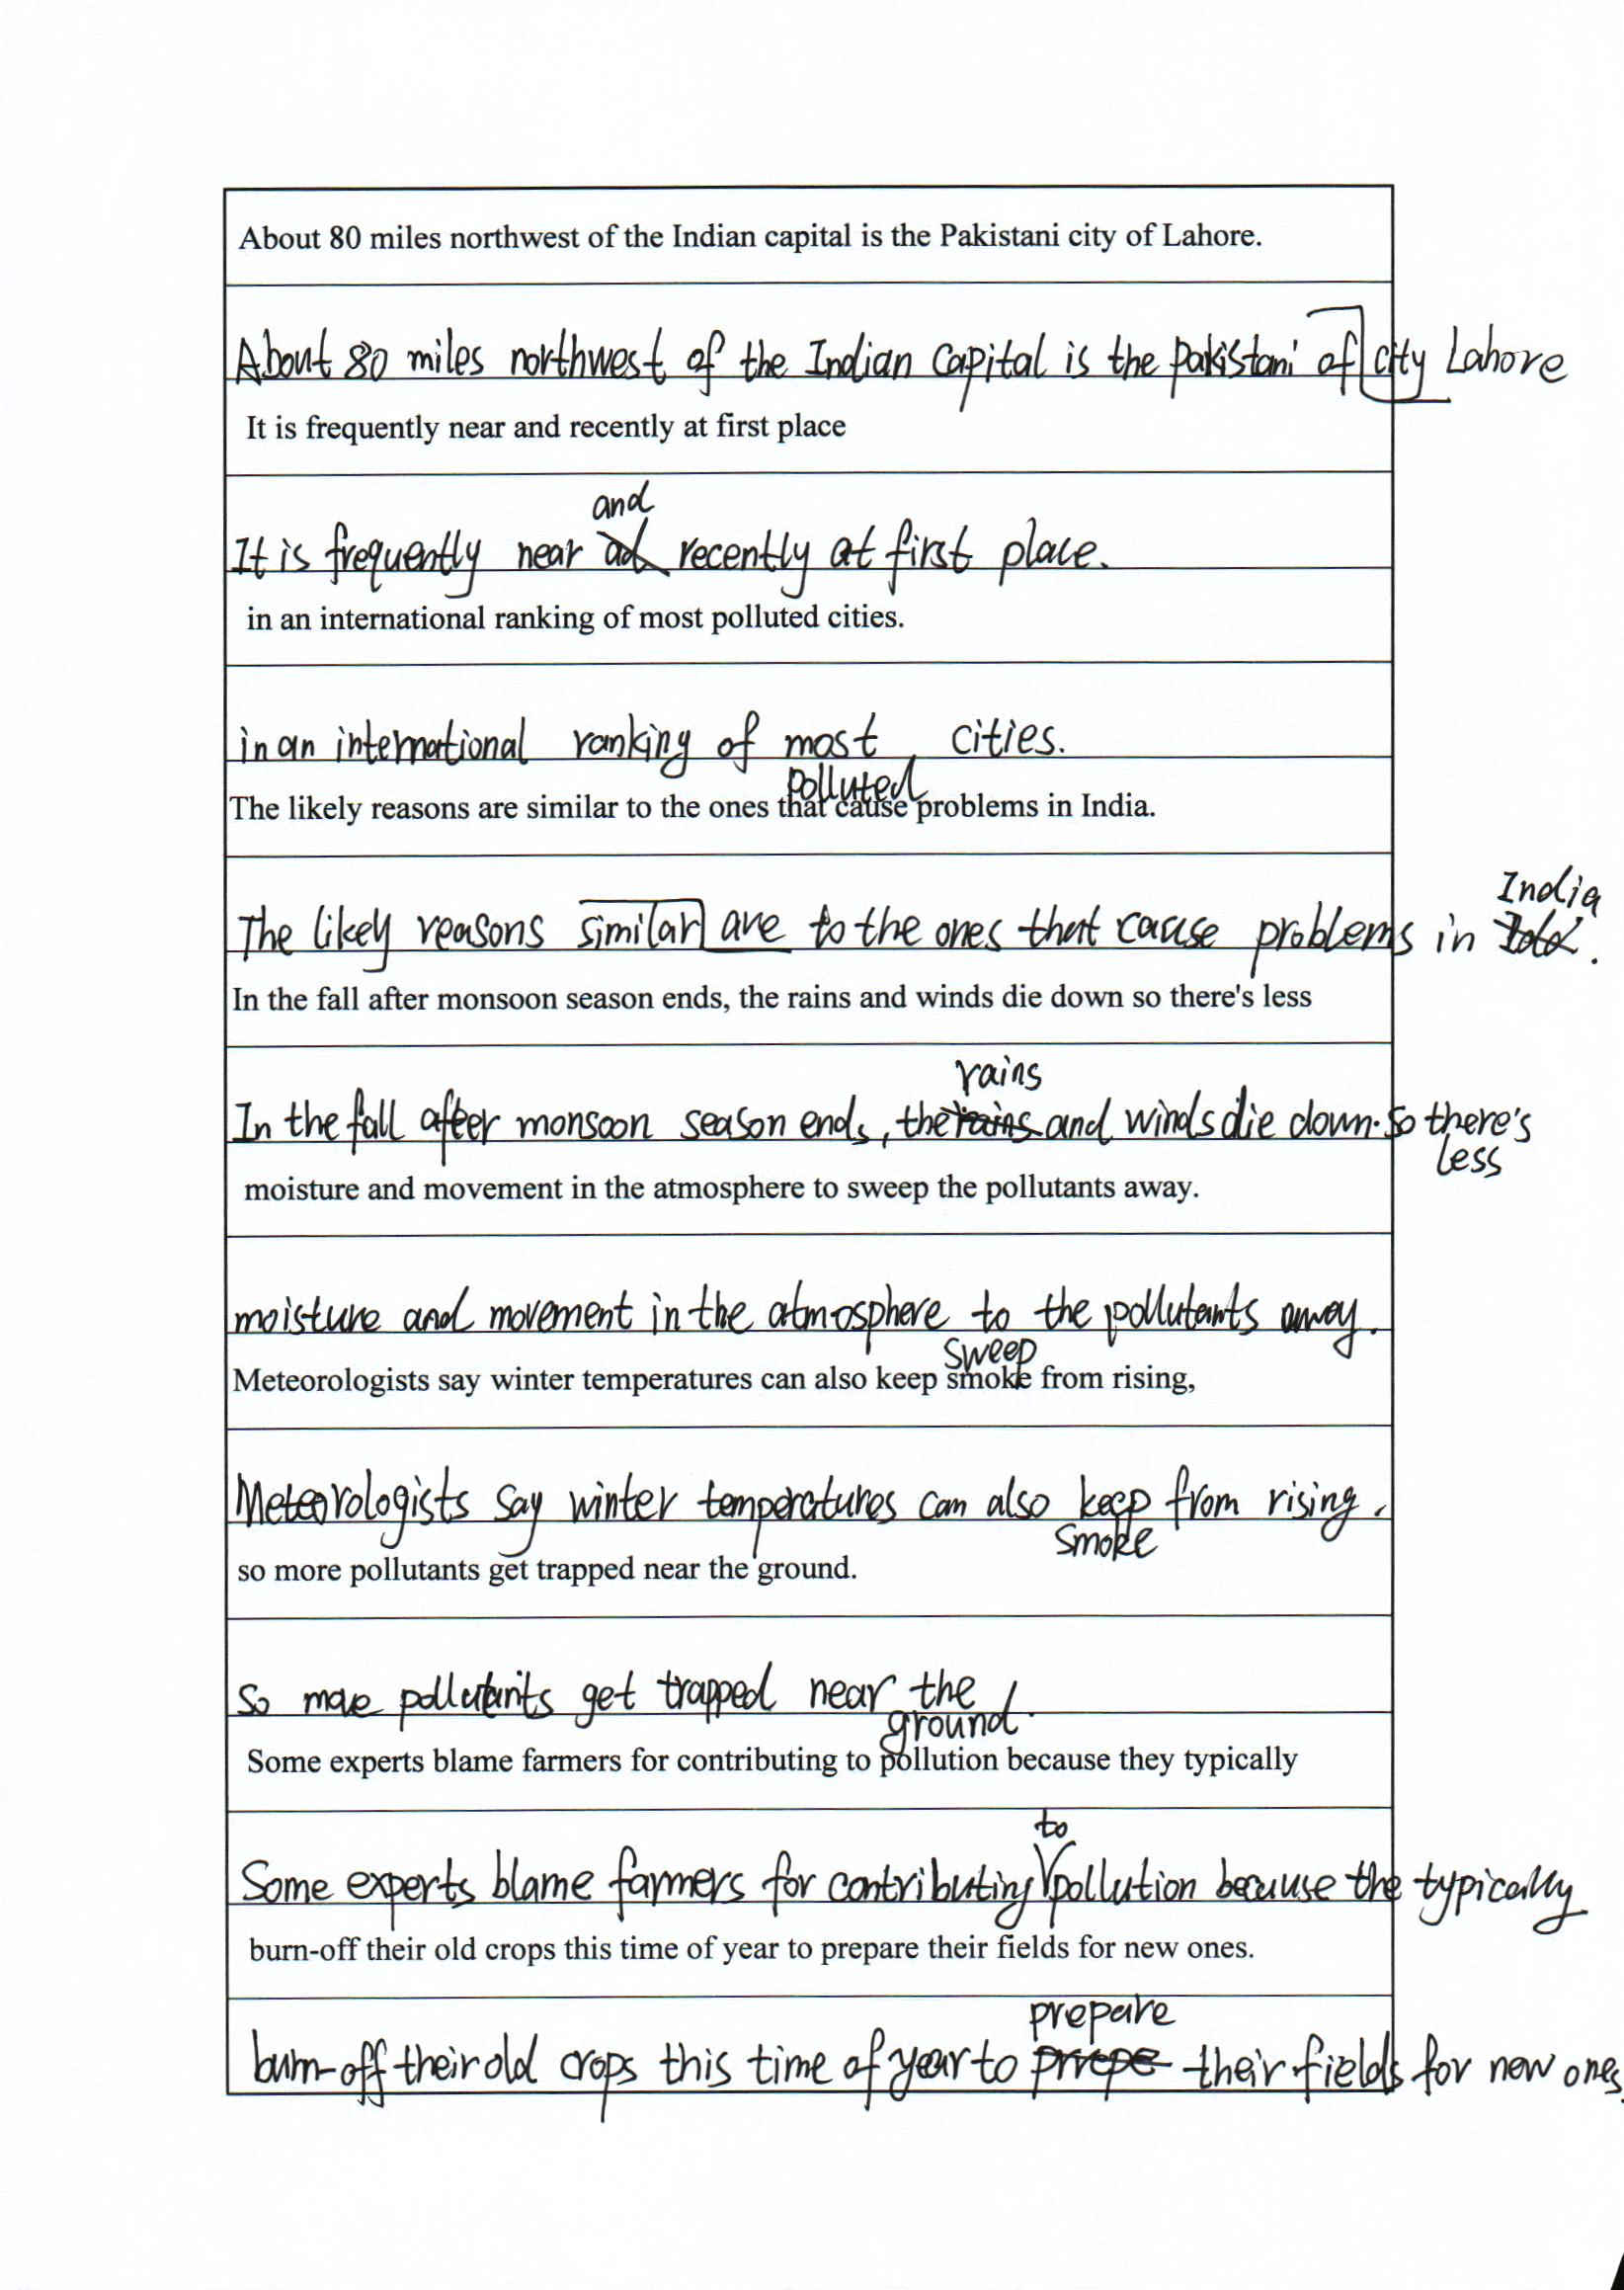 About 80 miles northwest of the Indian capital is the Pakistani city of Lahore.
About 80 miles northwest of the Indian Capital is the pakistani of city Lahore
It is frequently near and recently at first place
and
It is frequently near ad recently at first place.
in an international ranking of most polluted cities.
in an international ranking of most cities.
polluted
The likely reasons are similar to the ones that cause problems in India.
India
The likely reasons similar are to the ones that cause problems in .
In the fall after monsoon season ends, the rains and winds die down so there's less
rains
In the fall after monsoon season ends, the rains and winds die down. so there's
less
moisture and movement in the atmosphere to sweep the pollutants away.
moisture and movement in the atmosphere to the pollutants away.
sweep
Meteorologists say winter temperatures can also keep smoke from rising,
Meteorologists say winter temperatures can also keep from rising,
smoke
so more pollutants get trapped near the ground.
so more pollutants get trapped near the
ground.
Some experts blame farmers for contributing to pollution because they typically
to
Some experts blame farmers for contributing pollution because the typically
burn-off their old crops this time of year to prepare their fields for new ones.
prepare
burn-off their old crops this time of year to their fields for new ones.